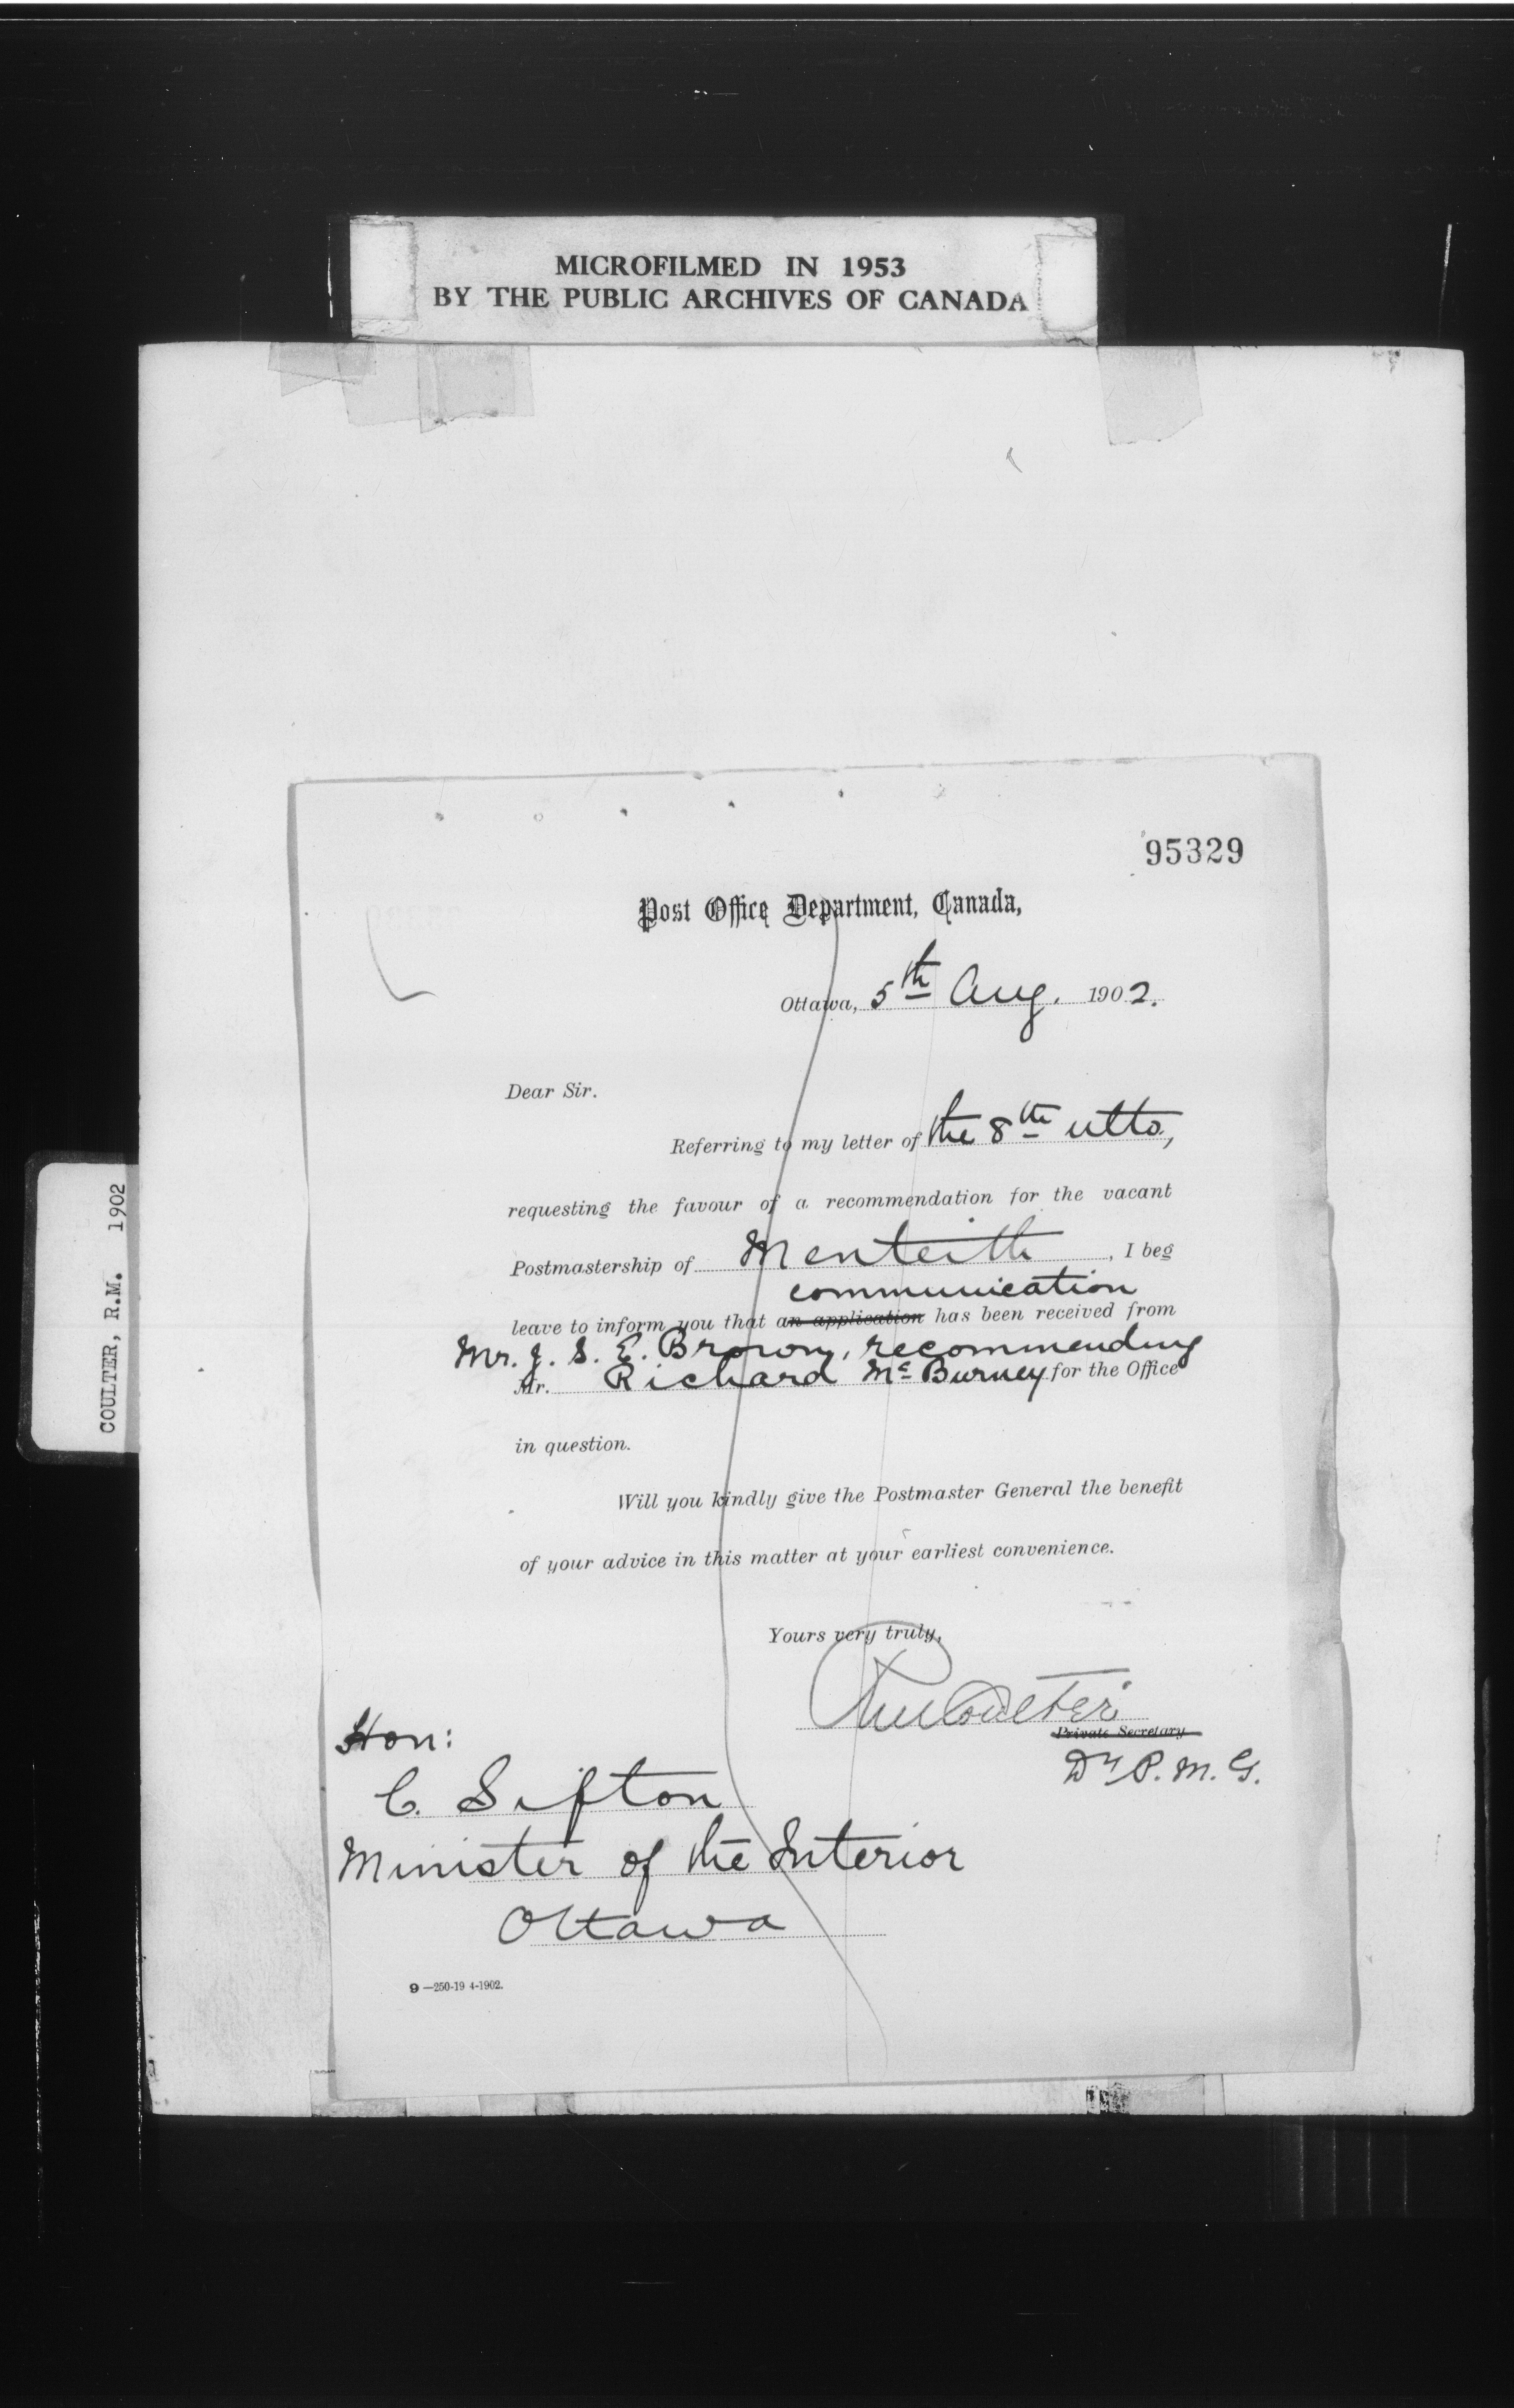 MICROFILMED IN 1953
BY THE PUBLIC ARCHIVES OF CANADA
COULTER, R.M. 1902
95329
Post Office Department, Canada,
Ottawa, 5th Aug. 1902.
Dear Sir.
Referring to my letter of the 8th ulto,
requesting the favour of a recommendation for the vacant
Postmastership of Menteith, I beg
communication
leave to inform you that an application has been received from
Mr. J. S. E. Brown, recommending
Mr. Richard Mc Burney for the Office
in question.
Will you kindly give the Postmaster General the benefit
of your advice in this matter at your earliest convenience.
Yours very truly,
RM Coulter
Private Secretary
Dy P. M. G.
Hon:
C. Sifton
Minister of the Interior
Ottawa
9—250-19 4-1902.